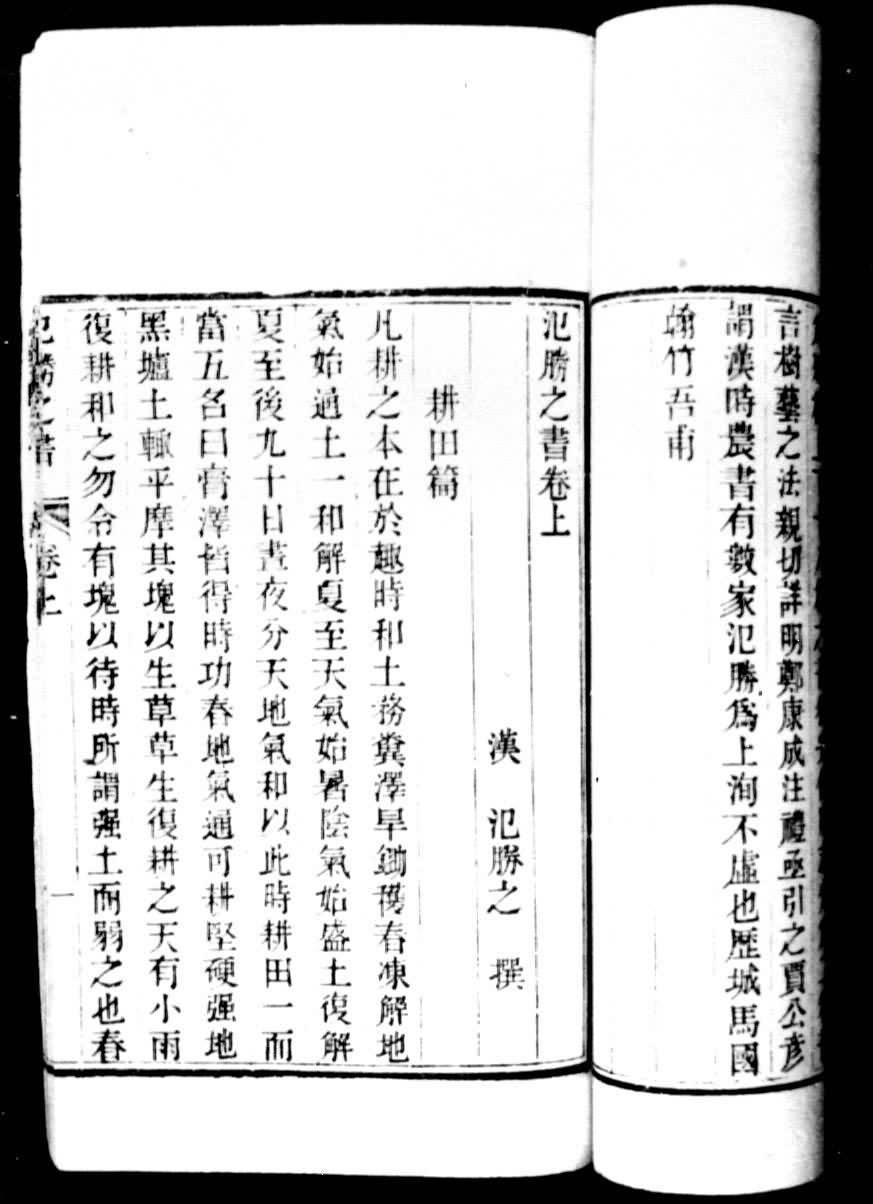 言樹藝之法親切詳明鄭康成注禮亟引之賈公彥
謂漢時農書有數家氾勝爲上洵不虛也歷城馬國
翰竹吾甫
氾勝之書卷上
漢 氾勝之 撰
耕田篇
凡耕之本在於趣時和土務糞澤旱鋤穫春凍解地
氣始通土一和解夏至天氣始暑陰氣始盛土復解
夏至後九十日晝夜分天地氣和以此時耕田一而
當五名曰膏澤皆得時功春地氣通可耕堅硬强地
黑壚土輒平摩其塊以生草草生復耕之天有小雨
復耕和之勿令有塊以待時所謂强土而弱之也春
氾勝之書 卷上 一